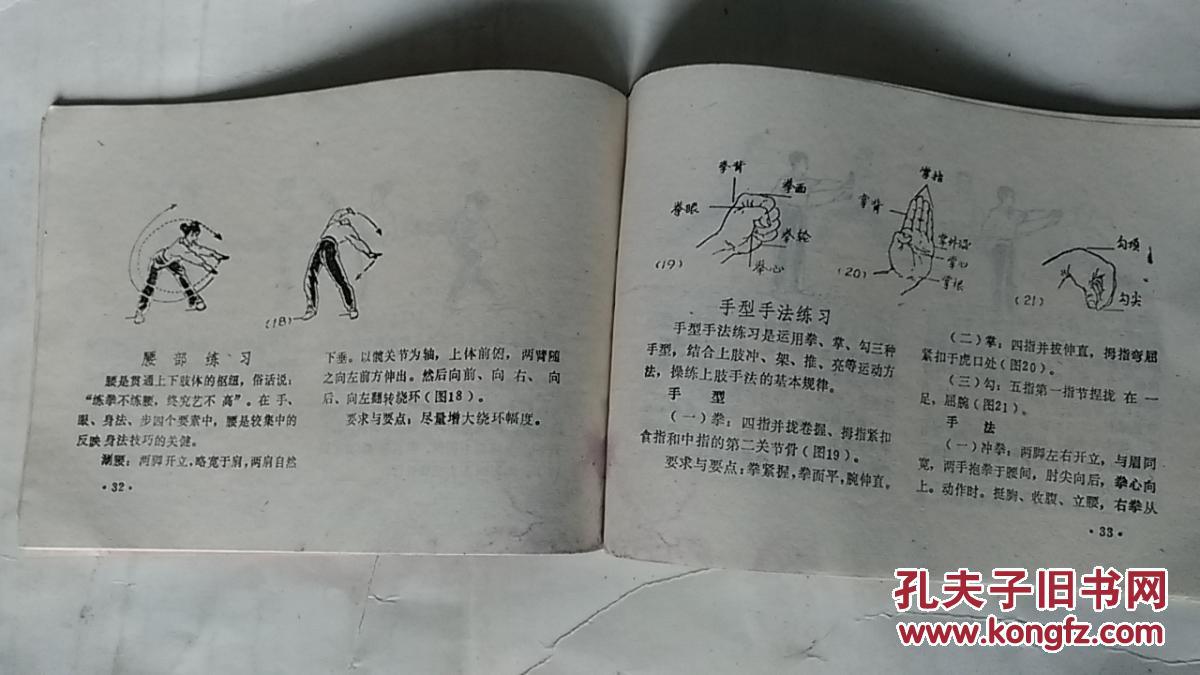 (18)
腰部练习
腰是贯通上下肢体的枢纽，俗话说：
“练拳不练腰，终究艺不高”。在手、
眼、身法、步四个要素中，腰是较集中的
反映身法技巧的关健。
涮腰：两脚开立，略宽于肩，两肩自然
·32·
下垂。以髋关节为轴，上体前俯，两臂随
之向左前方伸出。然后向前、向右、向
后、向左翻转绕环（图18）。
要求与要点：尽量增大绕环幅度。
拳背
拳面
拳眼
拳轮
拳心
(19)
掌指
掌背
掌心
掌根
(20)
勾顶
勾尖
(21)
手型手法练习
手型手法练习是运用拳、掌、勾三种
手型，结合上肢冲、架、推、亮等运动方
法，操练上肢手法的基本规律。
手型
（一）拳：四指并拢卷握、拇指紧扣
食指和中指的第二关节骨（图19）。
要求与要点：拳紧握，拳面平，腕伸直。
（二）掌：四指并拔伸直，拇指弯屈
紧扣于虎口处（图20）。
（三）勾：五指第一指节捏拢在一
足，屈腕（图21）。
手法
（一）冲拳：两脚左右开立，与眉同
宽，两手抱拳于腰间，肘尖向后，拳心向
上。动作时。挺胸、收腹、立腰，右拳从
·33·
孔夫子旧书网
www.kongfz.com